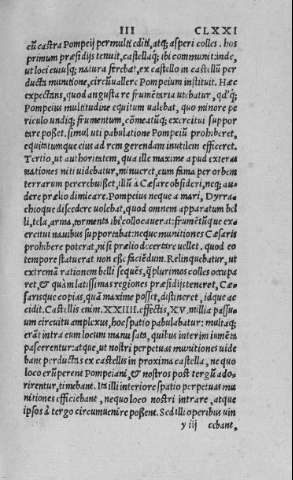 III CLXXI
cũ castra Pompeij permulti editi, atq; asperi colles. hos
primum præsidijs tenuit, castellaq; ibi communit. inde,
ut loci cuiusq; natura ferebat, ex castello in castellũ per
ducta munitione, circũuallere Pompeium instituit. Hæc
expectans, quod angusta re frumẽtaria utebatur, q'dq;
Pompeius multitudine equitum ualebat, quo minore pe
riculo undiq; frumentum, cõmeatũq; exercitui suppor
tare posset. simul uti pabulatione Pompeiũ prohiberet,
equitumque eius ad rem gerendam inutilem efficeret.
Tertio, ut authoritatem, qua ille maxime apud exteras
nationes niti uidebatur, minueret, cum fama per orbem
terrarum percrebuisset, illũ à Cæsare obsideri, neq; au=
dere prælio dimicare. Pompeius neque a mari, Dyrra
chioque discedere uolebat, quod omnem apparatum bel
li, tela, arma, tormenta ibi collocauerat: frumẽtũque ex=
ercitui nauibus supportabat: neque munitiones Cæsaris
prohibere poterat, nisi prælio decertare uellet. quod eo
tempore statuerat non esse faciẽdum. Relinquebatur, ut
extremã rationem belli sequẽs, q̃plurimos colles occupa
ret, & quàm latissimas regiones præsidijs teneret, Cæ=
sarisque copias, quã maxime posset, distineret. idque ac
cidit. Castellis enim. XXIIII. effectis, XV. millia passuũ
um circuitu amplexus, hoc spatio pabulabatur: multaq;
erãt intra eum locum manu sata, quibus interim iumẽta
pascerentur: atque, ut nostri perpetuas munitiones uide
bant perductas ex castellis in proxima castella, nequo
loco erũperent Pompeiani, & nostros post tergũ ado=
rirentur, timebant. Ita illi interiore spatio perpetuas mu
nitiones efficiebant, nequo loco nostri intrare, atque
ipsos à tergo circumuenire possent. Sed illi operibus uin
y iij cebant,